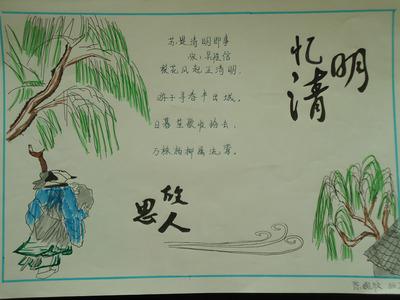 忆清明
苏堤清明即事
宋：吴惟信
梨花风起正清明，
游子寻春半出城。
日暮笙歌收拾去，
万株杨柳属流莺。
思故人